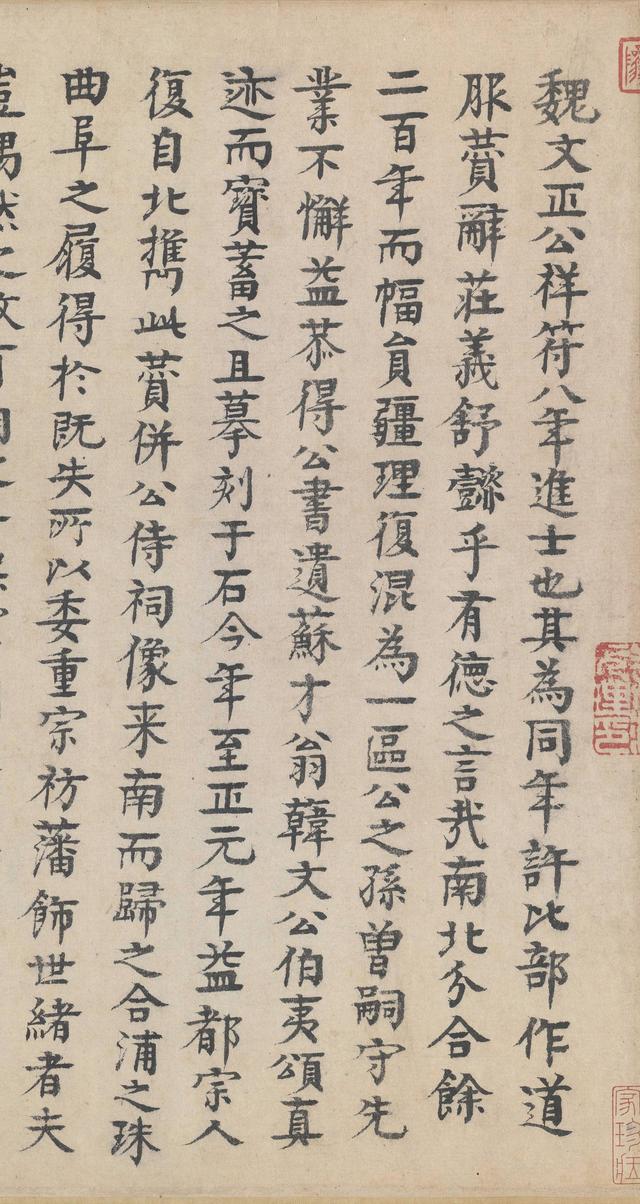 魏文正公祥符八年進士也其為同年許比部作道
服賛辭莊義舒懿乎有德之言㢤南北分合餘
二百年而幅員疆理復混為一區公之孫曽嗣守先
業不懈益恭得公書遺蘇才翁韓文公伯夷頌真
迹而寳蓄之且摹刻于石今年至正元年益都宗人
復自北携此賛併公侍祠像来南而歸之合浦之珠
曲阜之履得於既失所以委重宗祊藩飾世緒者夫
豈偶然之故